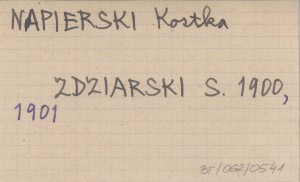 NAPIERSKI Kostka
ZDZIARSKI S. 1900,
1901
BF/062/0541